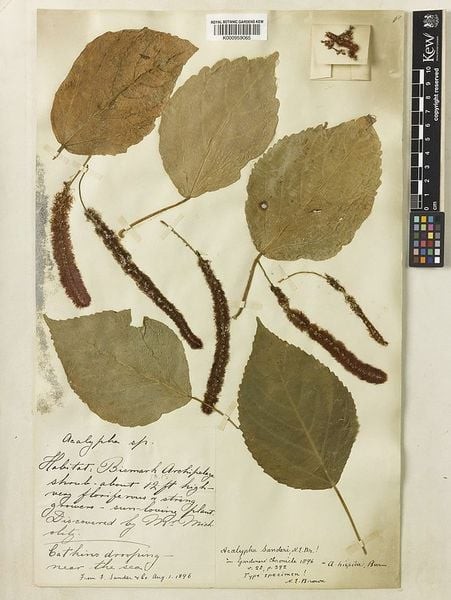 ROYAL BOTANIC GARDENS KEW
K000959065
Kew
copyright reserved
cm
Acalypha sp.
Habitat. Bismark Archipelago
shrub - about 12 ft high -
very floriferous & strong
growers - sun-loving plant.
Discovered by Mr Mich
olitz.
Catkins drooping -
near the sea
From F. Sander & Co Aug. 1. 1896
Acalypha Sanderi, N.E.Br.!
in Gardeners Chronicle 1896
v. 20, p. 392
Type specimen!
N. E. Brown
= A. hispida, Burm